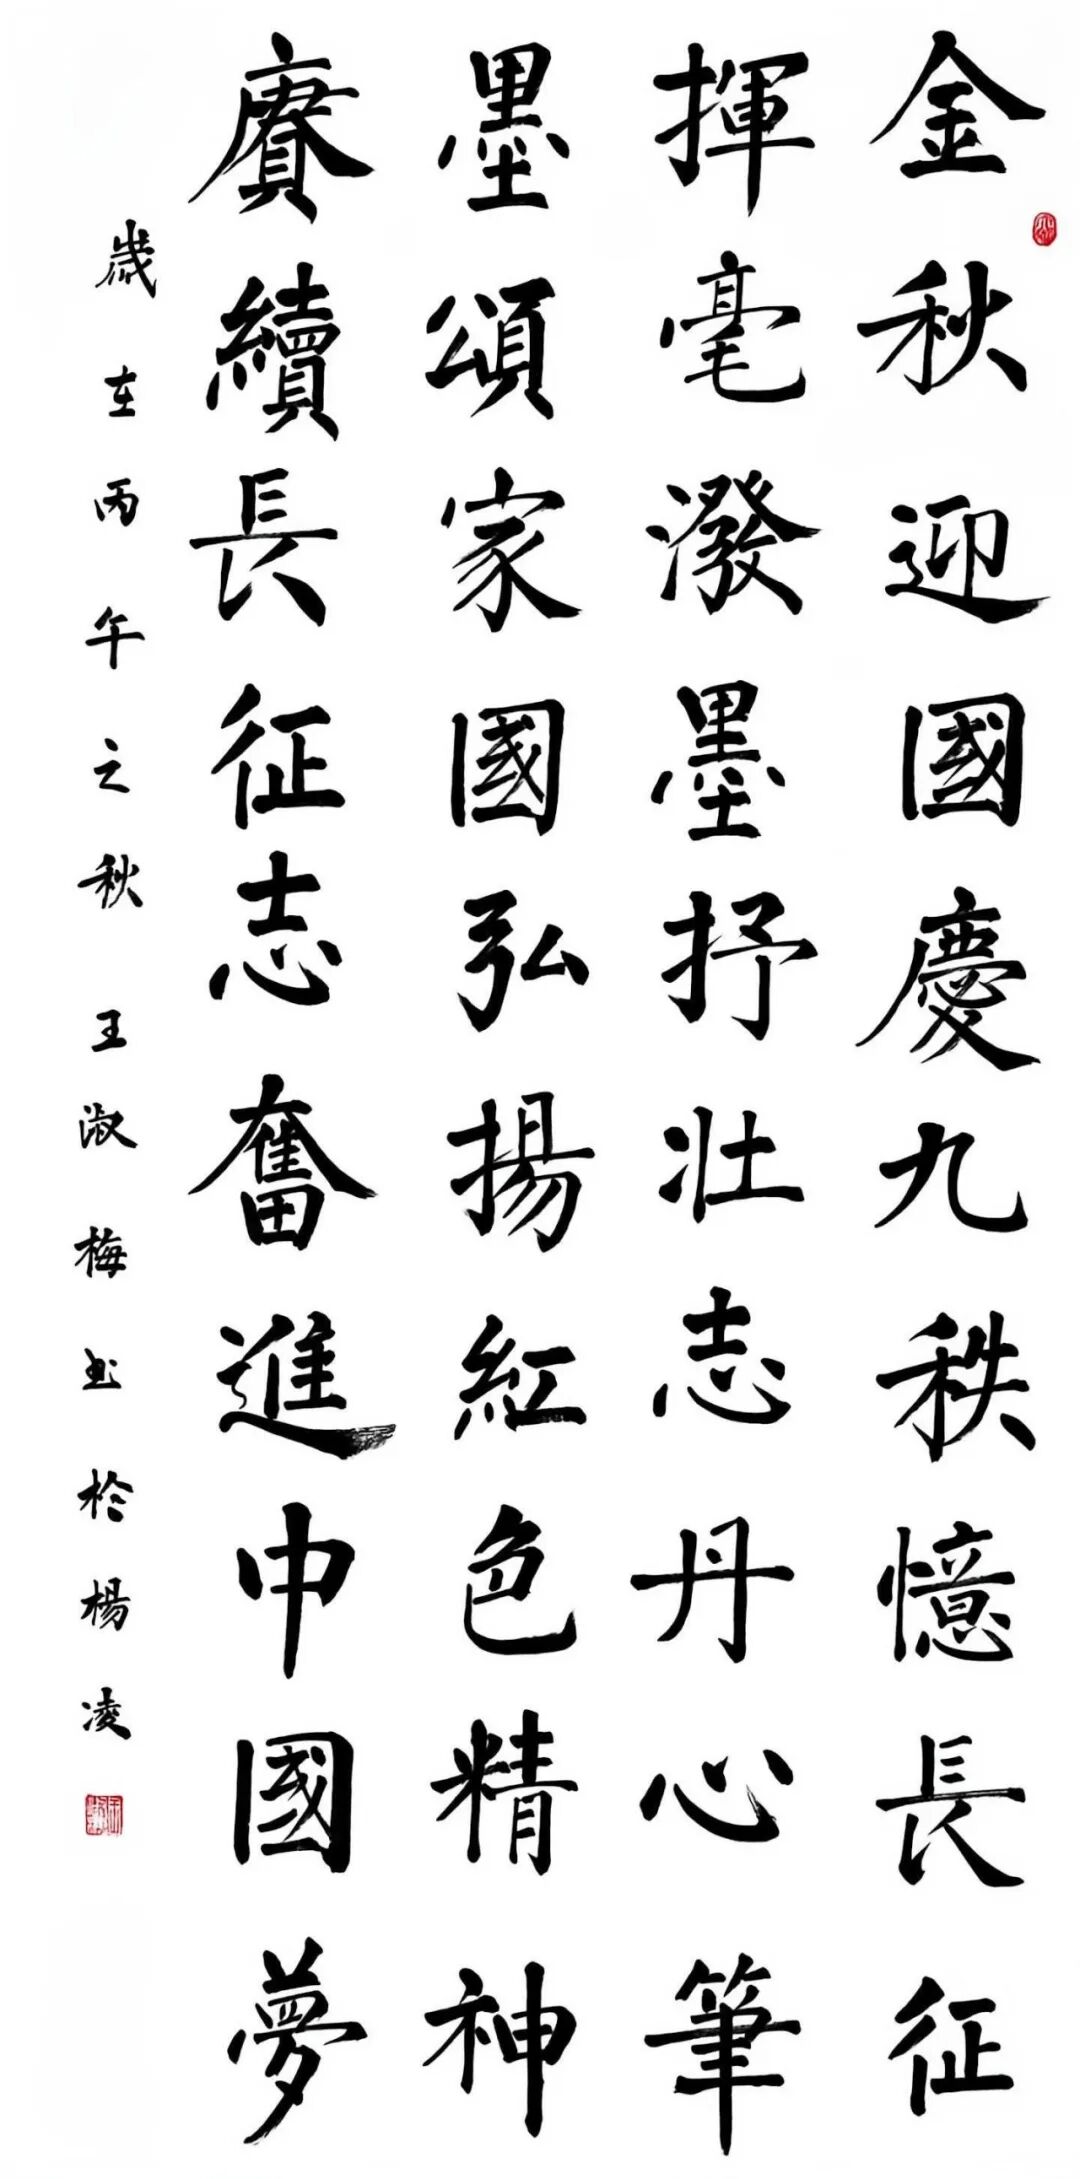 金秋迎國慶九秩憶長征
揮毫潑墨抒壯志丹心筆
墨頌家國弘揚紅色精神
賡續長征志奮進中國夢
歲在丙午之秋王淑梅书於楊凌